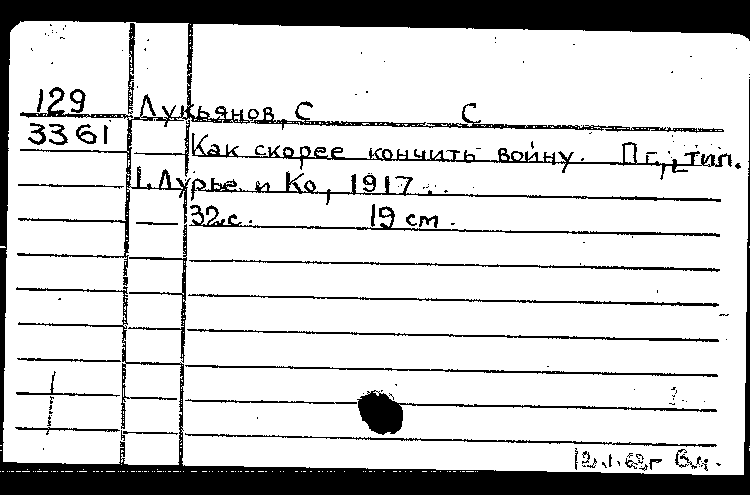 129 Лукьянов, С С
3361 Как скорее кончить войну. Пг., тип.
Лурье и Ко, 1917.
32 с. 19 см.
12.1.62г